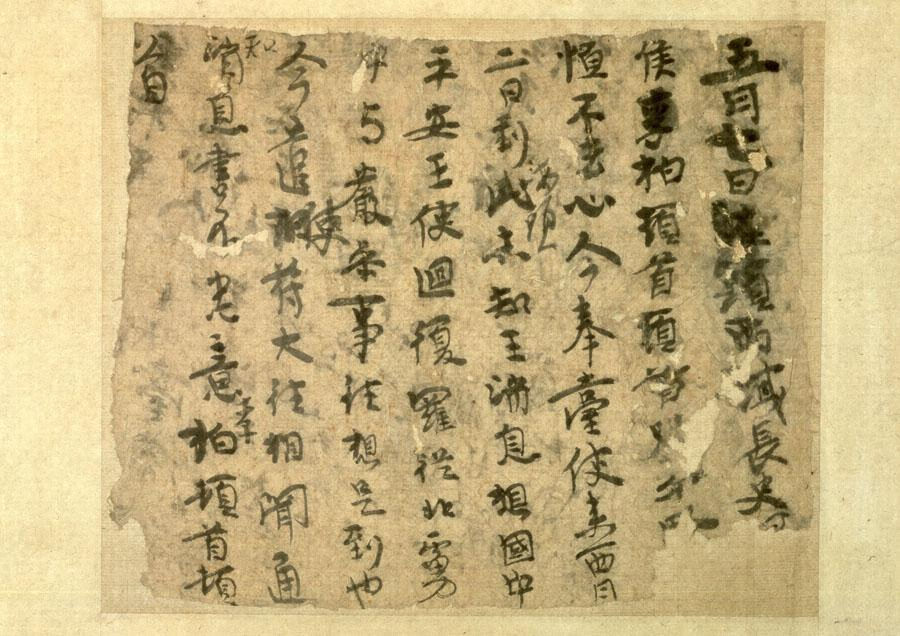 五月七日海頭西域長史
侯李柏頓首頓首
恒不去心今奉臺使來西月
二日到此海頭未知王消息想國中
平安王使迴復羅從北虜
中與嚴參事往想是到也
今遣使符大往相聞通
知消息書不悉意李柏頓首頓
首